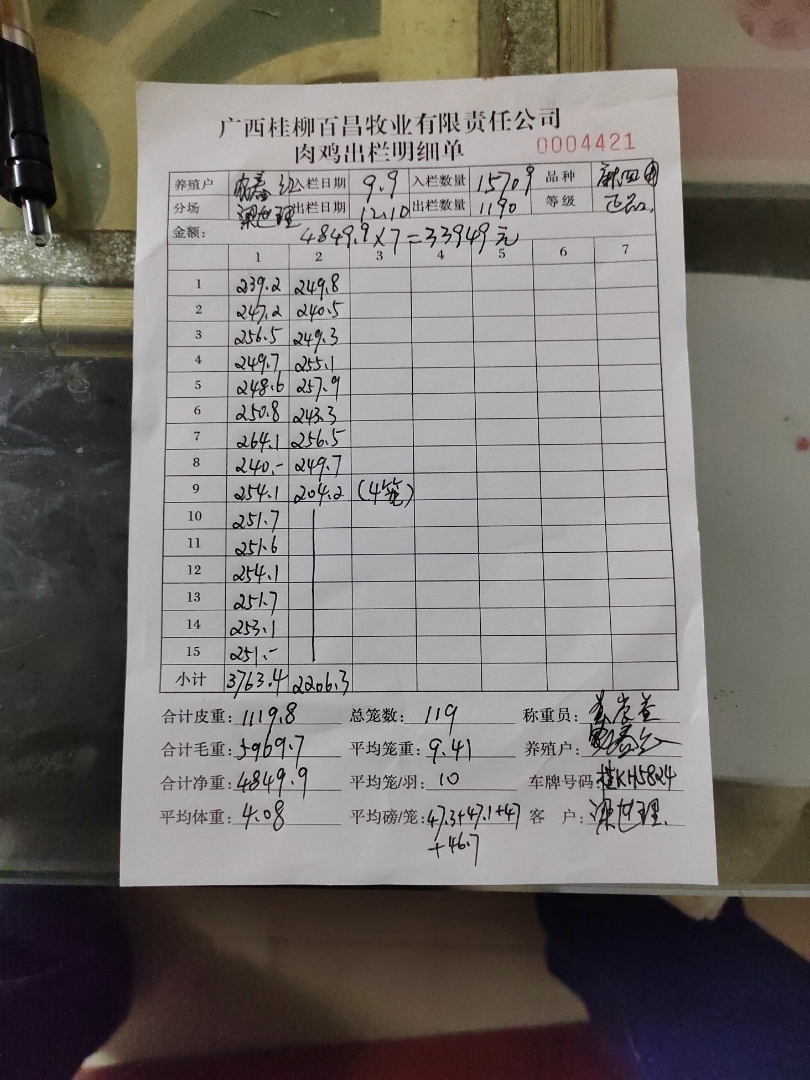 广西桂柳百昌牧业有限责任公司
肉鸡出栏明细单 0004421
养殖户 入栏日期 9.9 入栏数量 15709 品种
分场 梁世理 出栏日期 12.10 出栏数量 1190 等级 正品
金额: 4849.9×7=33949元
1 2 3 4 5 6 7
1 239.2 249.8
2 247.2 240.5
3 256.5 249.3
4 249.7 255.1
5 248.6 257.9
6 250.8 243.3
7 264.1 256.5
8 240.- 249.7
9 254.1 204.2 (4笼)
10 251.7
11 251.6
12 254.1
13 251.7
14 253.1
15 251.-
小计 3763.4 2206.3
合计皮重: 1119.8 总笼数: 119 称重员:
合计毛重: 5969.7 平均笼重: 9.41 养殖户:
合计净重: 4849.9 平均笼/羽: 10 车牌号码: 桂KH5824
平均体重: 4.08 平均磅/笼: 47.3+47.1+47 客 户: 梁世理
+46.7